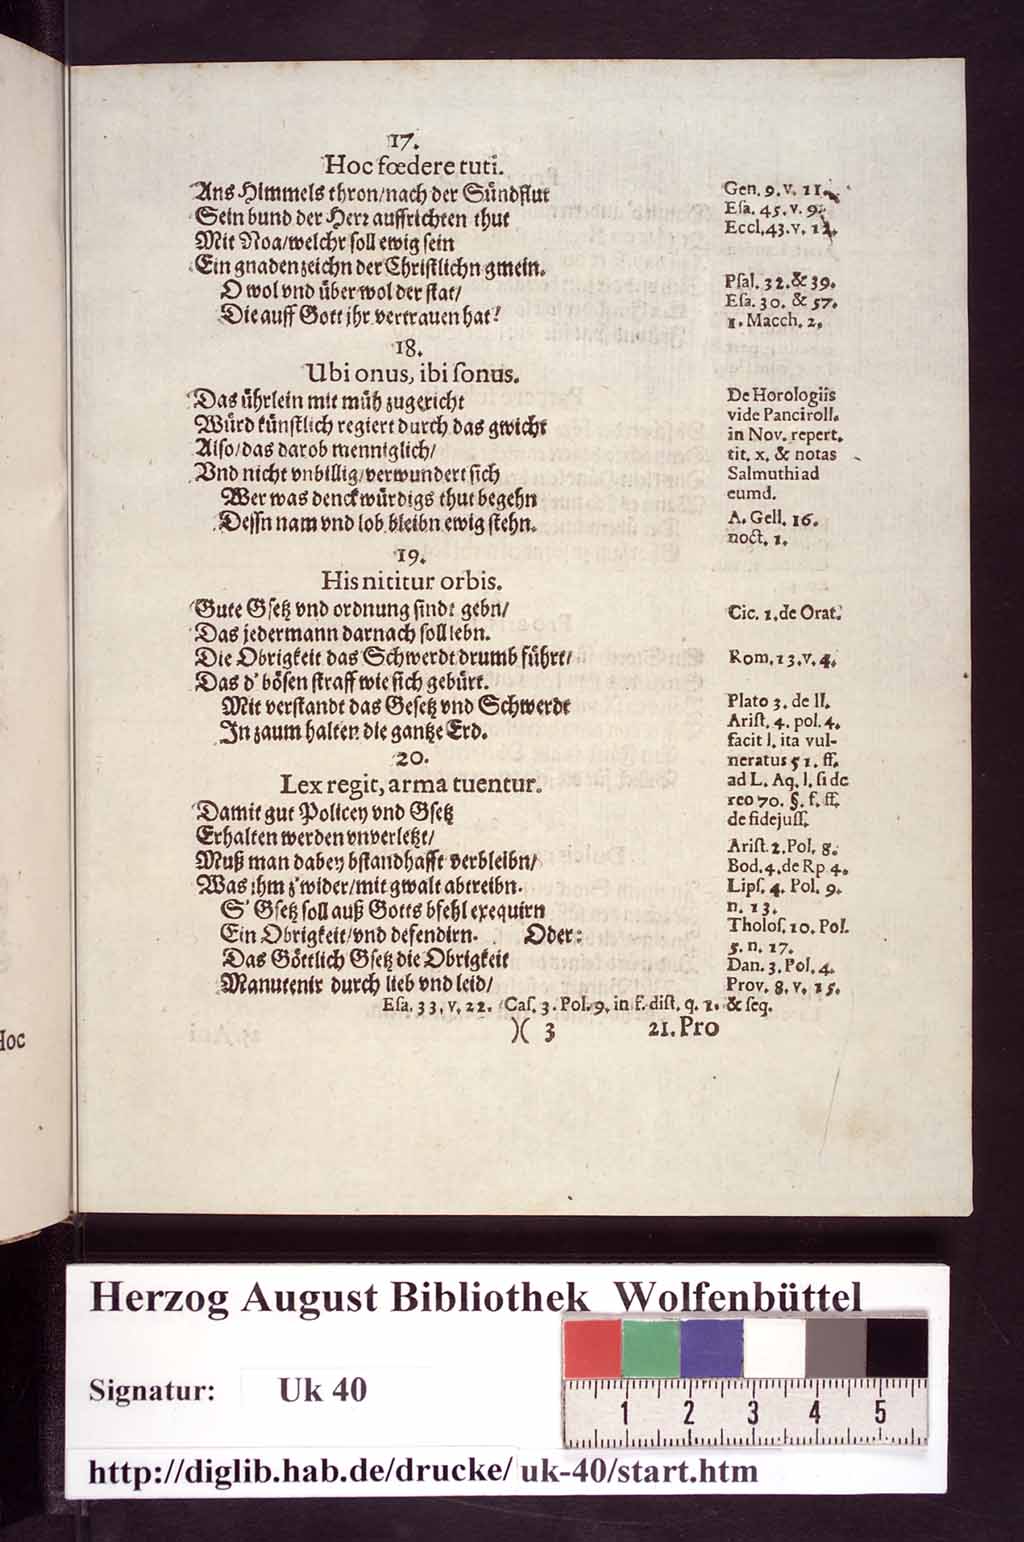 17.
Hoc fœdere tuti.
Ans Himmels thron/nach der Sündflut
Sein bund der Herr auffrichten thut
Mit Noa/welchr soll ewig sein
Ein gnadenzeichn der Christlichn gmein.
O wol vnd über wol der stat/
Die auff Gott jhr vertrauen hat!
Gen. 9. v. 11.
Esa. 45. v. 9.
Eccl. 43. v. 12.
Psal. 32. & 39.
Esa. 30. & 57.
1. Macch. 2.
18.
Ubi onus, ibi sonus.
Das ührlein mit müh zugericht
Würd künstlich regiert durch das gwicht
Also/das darob menniglich/
Vnd nicht vnbillig/verwundert sich
Wer was denckwürdigs thut begehn
Dessn nam vnd lob bleibn ewig stehn.
De Horologiis
vide Panciroll.
in Nov. repert.
tit. x. & notas
Salmuthi ad
eumd.
A. Gell. 16.
noct. 1.
19.
His nititur orbis.
Gute Gsetz vnd ordnung sindt gebn/
Das jedermann darnach soll lebn.
Die Obrigkeit das Schwerdt drumb führt/
Das d' bösen straff wie sich gebürt.
Mit verstandt das Gesetz vnd Schwerdt
In zaum halten die gantze Erd.
Cic. 1. de Orat.
Rom. 13. v. 4.
Plato 3. de ll.
Arist. 4. pol. 4.
facit l. ita vul-
neratus 51. ff.
ad L. Aq. l. si de
reo 70. §. f. ff.
de fidejuss.
20.
Lex regit, arma tuentur.
Damit gut Policey vnd Gsetz
Erhalten werden vnverletzt/
Muß man dabey bstandhafft verbleibn/
Was ihm z'wider/mit gwalt abtreibn.
S' Gsetz soll auß Gotts bfehl exequirn
Ein Obrigkeit/vnd defendirn. Oder:
Das Göttlich Gsetz die Obrigkeit
Manutenir durch lieb vnd leid/
Arist. 2. Pol. 8.
Bod. 4. de Rp 4.
Lips. 4. Pol. 9.
n. 13.
Tholos. 10. Pol.
5. n. 17.
Dan. 3. Pol. 4.
Prov. 8. v. 15.
Esa. 33. v. 22. Cas. 3. Pol. 9. in f. dist. q. 1. & seq.
)( 3 21. Pro
Hoc
Herzog August Bibliothek Wolfenbüttel
Signatur: Uk 40
1 2 3 4 5
http://diglib.hab.de/drucke/uk-40/start.htm